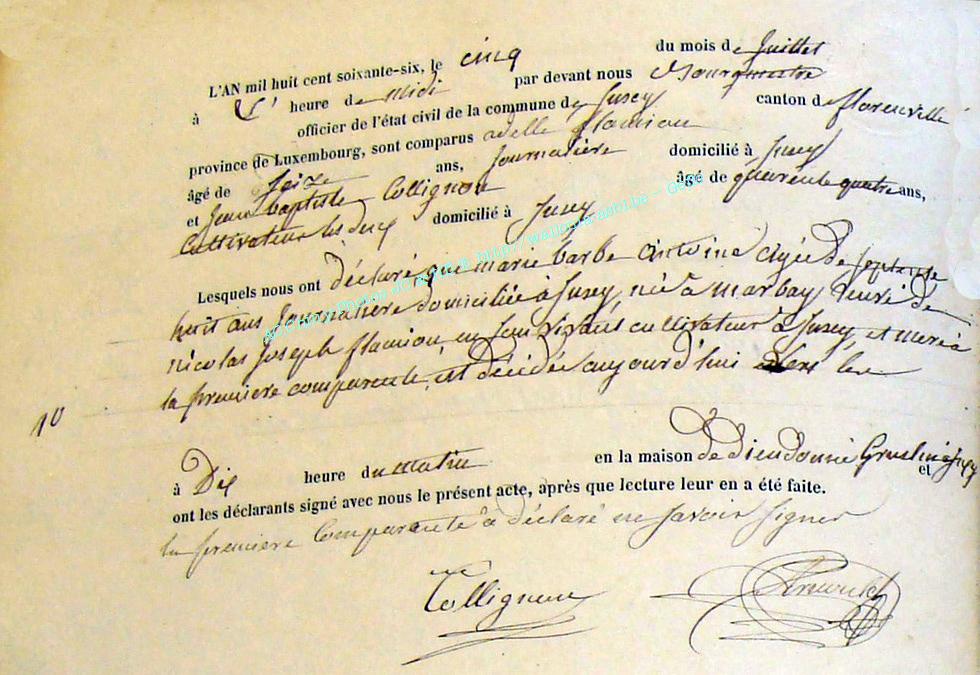 L'AN mil huit cent soixante-six, le cinq du mois de Juillet
à L' heure de midi par devant nous Bourgmestre
officier de l'état civil de la commune de Jusey canton de florenville
province de Luxembourg, sont comparus adelle flamion
âgé de seize ans, Journalière domicilié à Jusey
et Jean baptiste Collignon âgé de quarente quatre ans,
Cultivateur les deux domicilié à Jusey
Lesquels nous ont déclaré que marie barbe antoine agée de
huit ans Journalière domiciliée à Jusey, née à marbay veuve de
nicolas Joseph flamion, en son vivant cultivateur à Jusey, et mere à
la premiere comparente, est décédée aujourd'hui vers les
10
à Dix heure du matin en la maison de dieudonné à Jusey et
ont les déclarants signé avec nous le présent acte, après que lecture leur en a été faite.
la premiere Comparente a déclaré ne savoir signer
Collignon